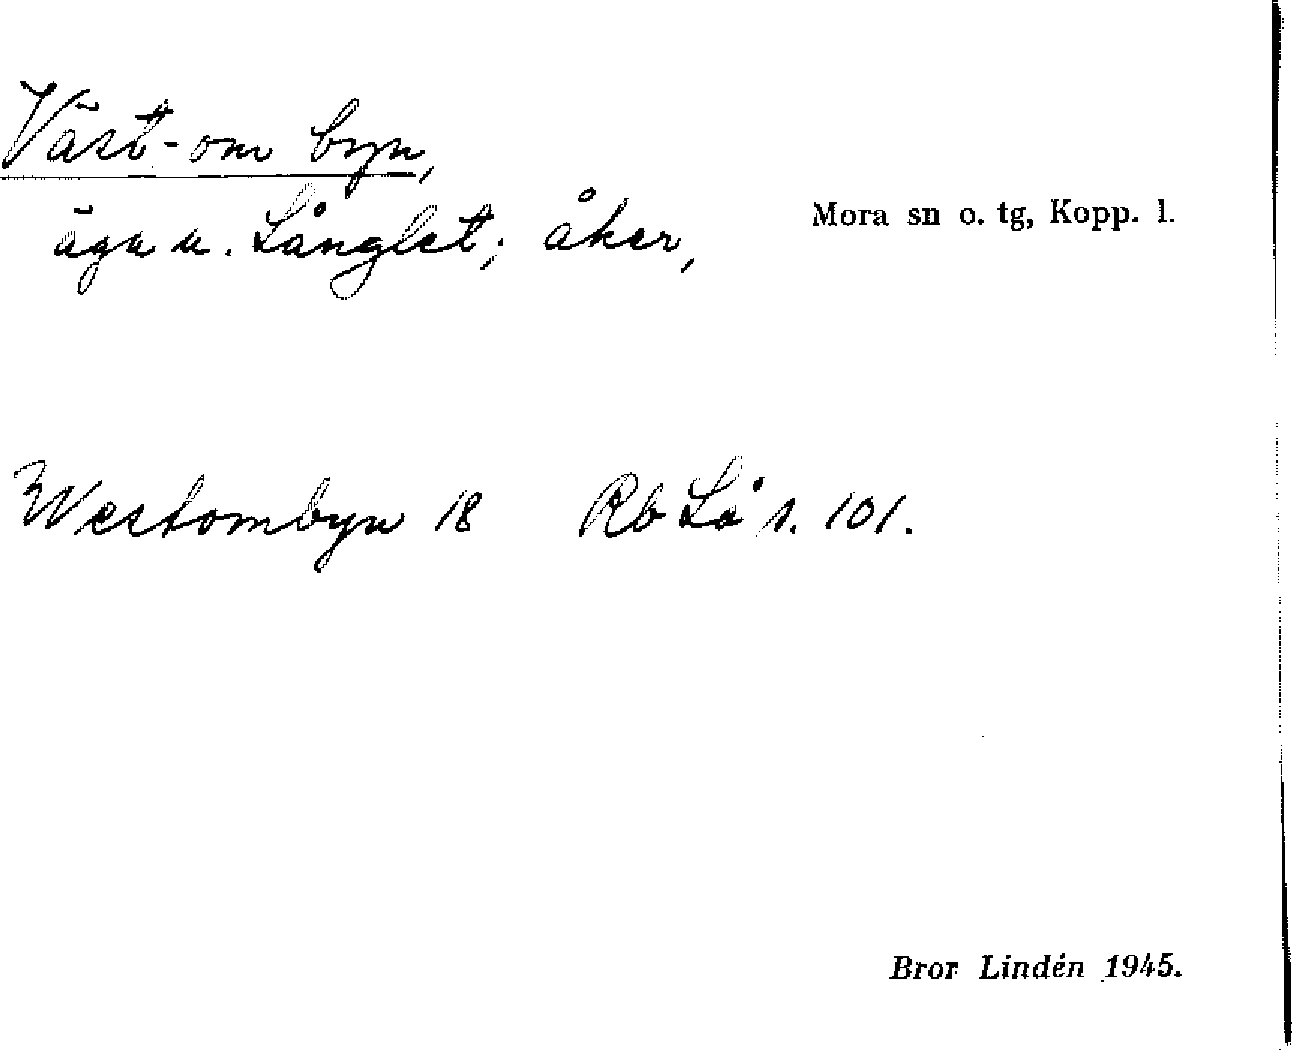 Väst-om byn,
äga u. Långlet; åker,
Mora sn o. tg, Kopp. l.
Westombyn 18 Rb Lå s. 101.
Bror Lindén 1945.